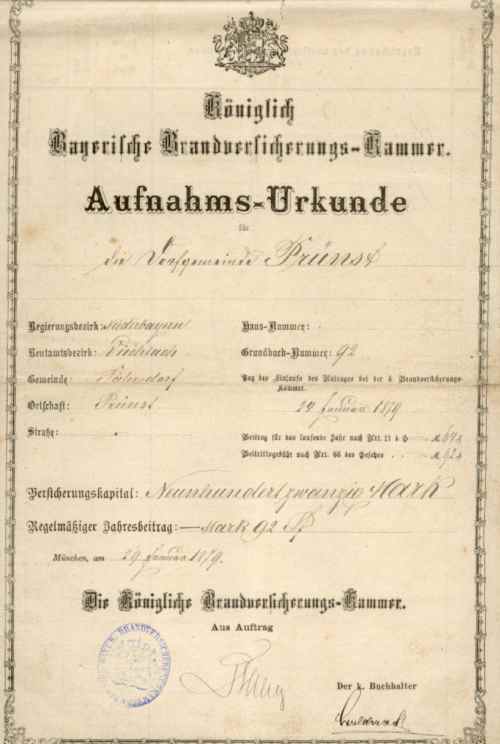 Königlich
Bayerische Brandversicherungs-Kammer.
Aufnahms-Urkunde
für
die Dorfgemeinde Prünst
Regierungsbezirk: Niederbayern
Haus-Nummer: .
Rentamtsbezirk: Viechtach
Grundbuch-Nummer: 92
Gemeinde:
Tag des Einlaufes des Antrages bei der k. Brandversicherungs-
Kammer.
Ortschaft: Prünst
24 Januar 1879
Straße: .
Beitrag für das laufende Jahr nach Art.
Beitrittsgebühr nach Art. 66 des Gesetzes
Versicherungskapital: Neunhundertzwanzig Mark
Regelmäßiger Jahresbeitrag: — Mark 92
München, am 29. Januar 1879.
Die Königliche Brandversicherungs-Kammer.
Aus Auftrag
Der k. Buchhalter